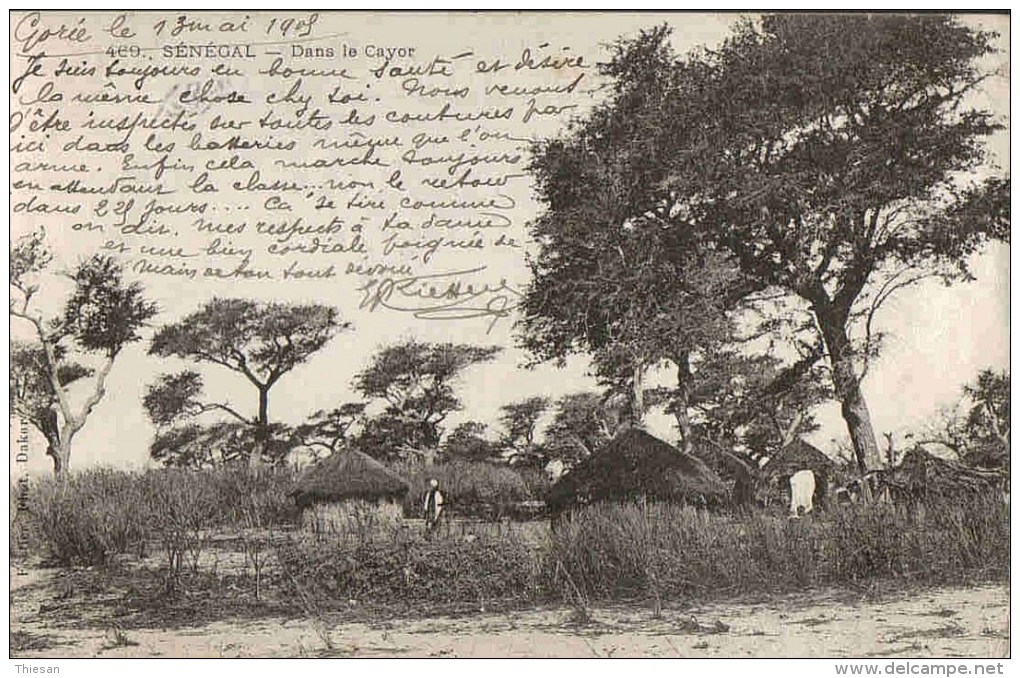 Gorée le 13 mai 1905
469. SÉNÉGAL — Dans le Cayor
Je suis toujours en bonne santé et désire
la même chose chez toi. Nous venons
d'être inspectés sur toutes les coutures par
ici dans les batteries même que l'on
arme. Enfin cela marche toujours
en attendant la classe... non le retour
dans 225 jours.... Ca se tire comme
on dit. Mes respects à ta dame
et une bien cordiale poignée de
main de ton tout dévoué
Phot. Dakar
Thiesan
www.delcampe.net